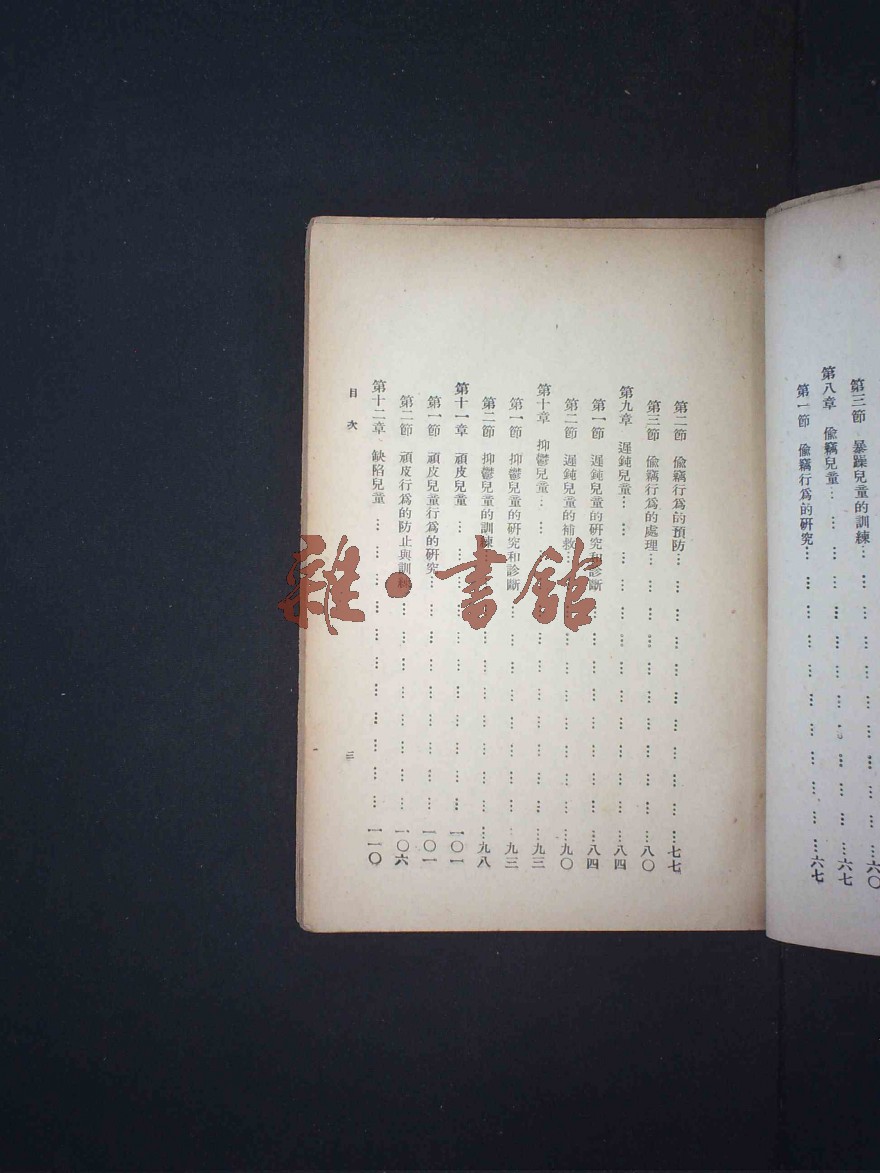 第三節　暴躁兒童的訓練…………………………六〇
第八章　偸竊兒童…………………………六七
第一節　偸竊行爲的研究…………………………六七
第二節　偸竊行爲的預防…………………………七七
第三節　偸竊行爲的處理…………………………八〇
第九章　遲鈍兒童…………………………八四
第一節　遲鈍兒童的研究和診斷…………………………八四
第二節　遲鈍兒童的補救…………………………九〇
第十章　抑鬱兒童…………………………九三
第一節　抑鬱兒童的研究和診斷…………………………九三
第二節　抑鬱兒童的訓練…………………………九八
第十一章　頑皮兒童…………………………一〇一
第一節　頑皮兒童行爲的研究…………………………一〇一
第二節　頑皮行爲的防止與訓練…………………………一〇六
第十二章　缺陷兒童…………………………一一〇
目次　三
雜·書館